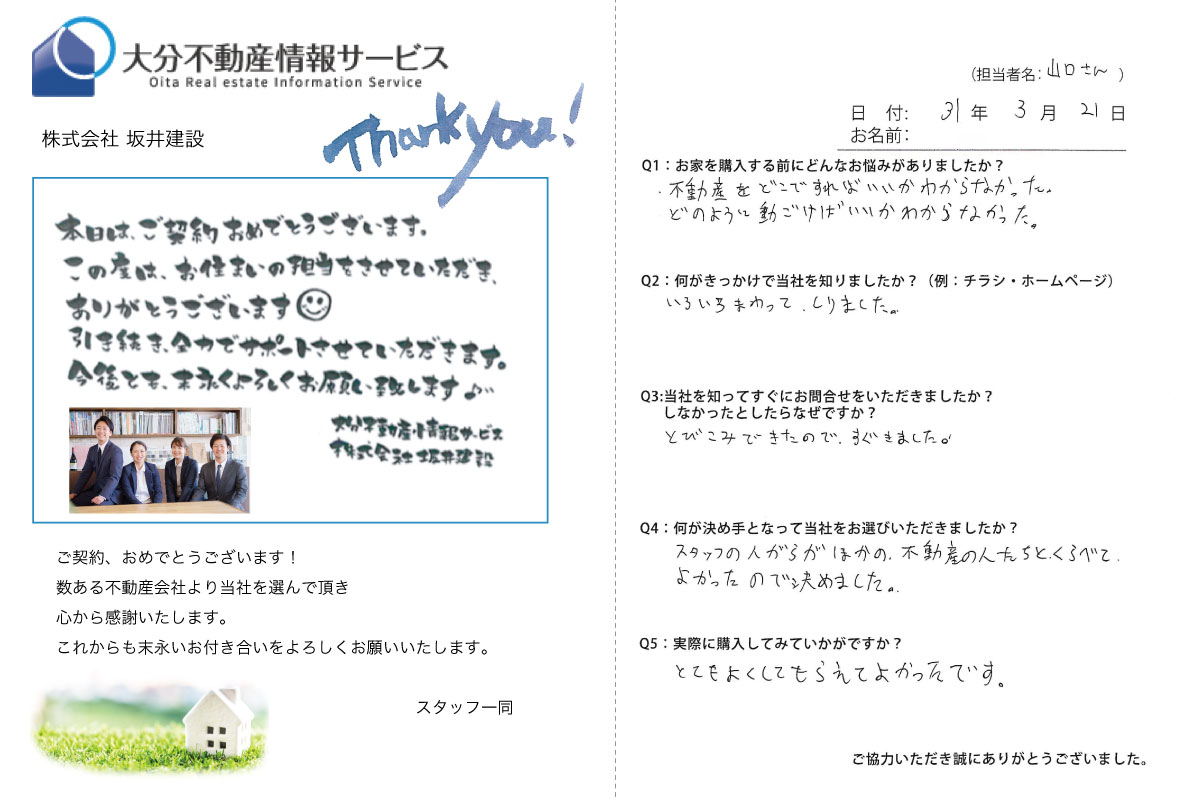 大分不動産情報サービス
Oita Real estate Information Service
株式会社 坂井建設
Thank you!
本日は、ご契約おめでとうございます。
この度は、お住まいの担当をさせていただき、
ありがとうございます
引き続き、全力でサポートさせていただきます。
今後とも、末永くよろしくお願い致します♪
大分不動産情報サービス
株式会社 坂井建設
ご契約、おめでとうございます！
数ある不動産会社より当社を選んで頂き
心から感謝いたします。
これからも末永いお付き合いをよろしくお願いいたします。
スタッフ一同
（担当者名：山口さん ）
日 付： 31年 3月 21日
お名前：
Q1：お家を購入する前にどんなお悩みがありましたか？
・不動産をどこですればいいかわからなかった。
どのように動ごけばいいかわからなかった。
Q2：何がきっかけで当社を知りましたか？（例：チラシ・ホームページ）
いろいろまわって、しりました。
Q3:当社を知ってすぐにお問合せをいただきましたか？
しなかったとしたらなぜですか？
とびこみできたので、すぐきました。
Q4：何が決め手となって当社をお選びいただきましたか？
スタッフの人がらがほかの、不動産の人たちとくらべて、
よかったので決めました。
Q5：実際に購入してみていかがですか？
とてもよくしてもらえてよかったです。
ご協力いただき誠にありがとうございました。